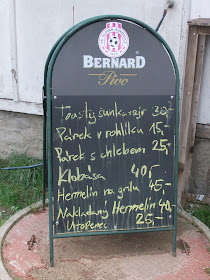 BERNARD
Pivo
Tousty šunka+sýr 30,-
Párek v rohlíku 15,-
Párek s chlebem 25,-
Klobása 40,-
Hermelín na grilu 45,-
Nakládaný Hermelín 40,-
Utopenec 25,-